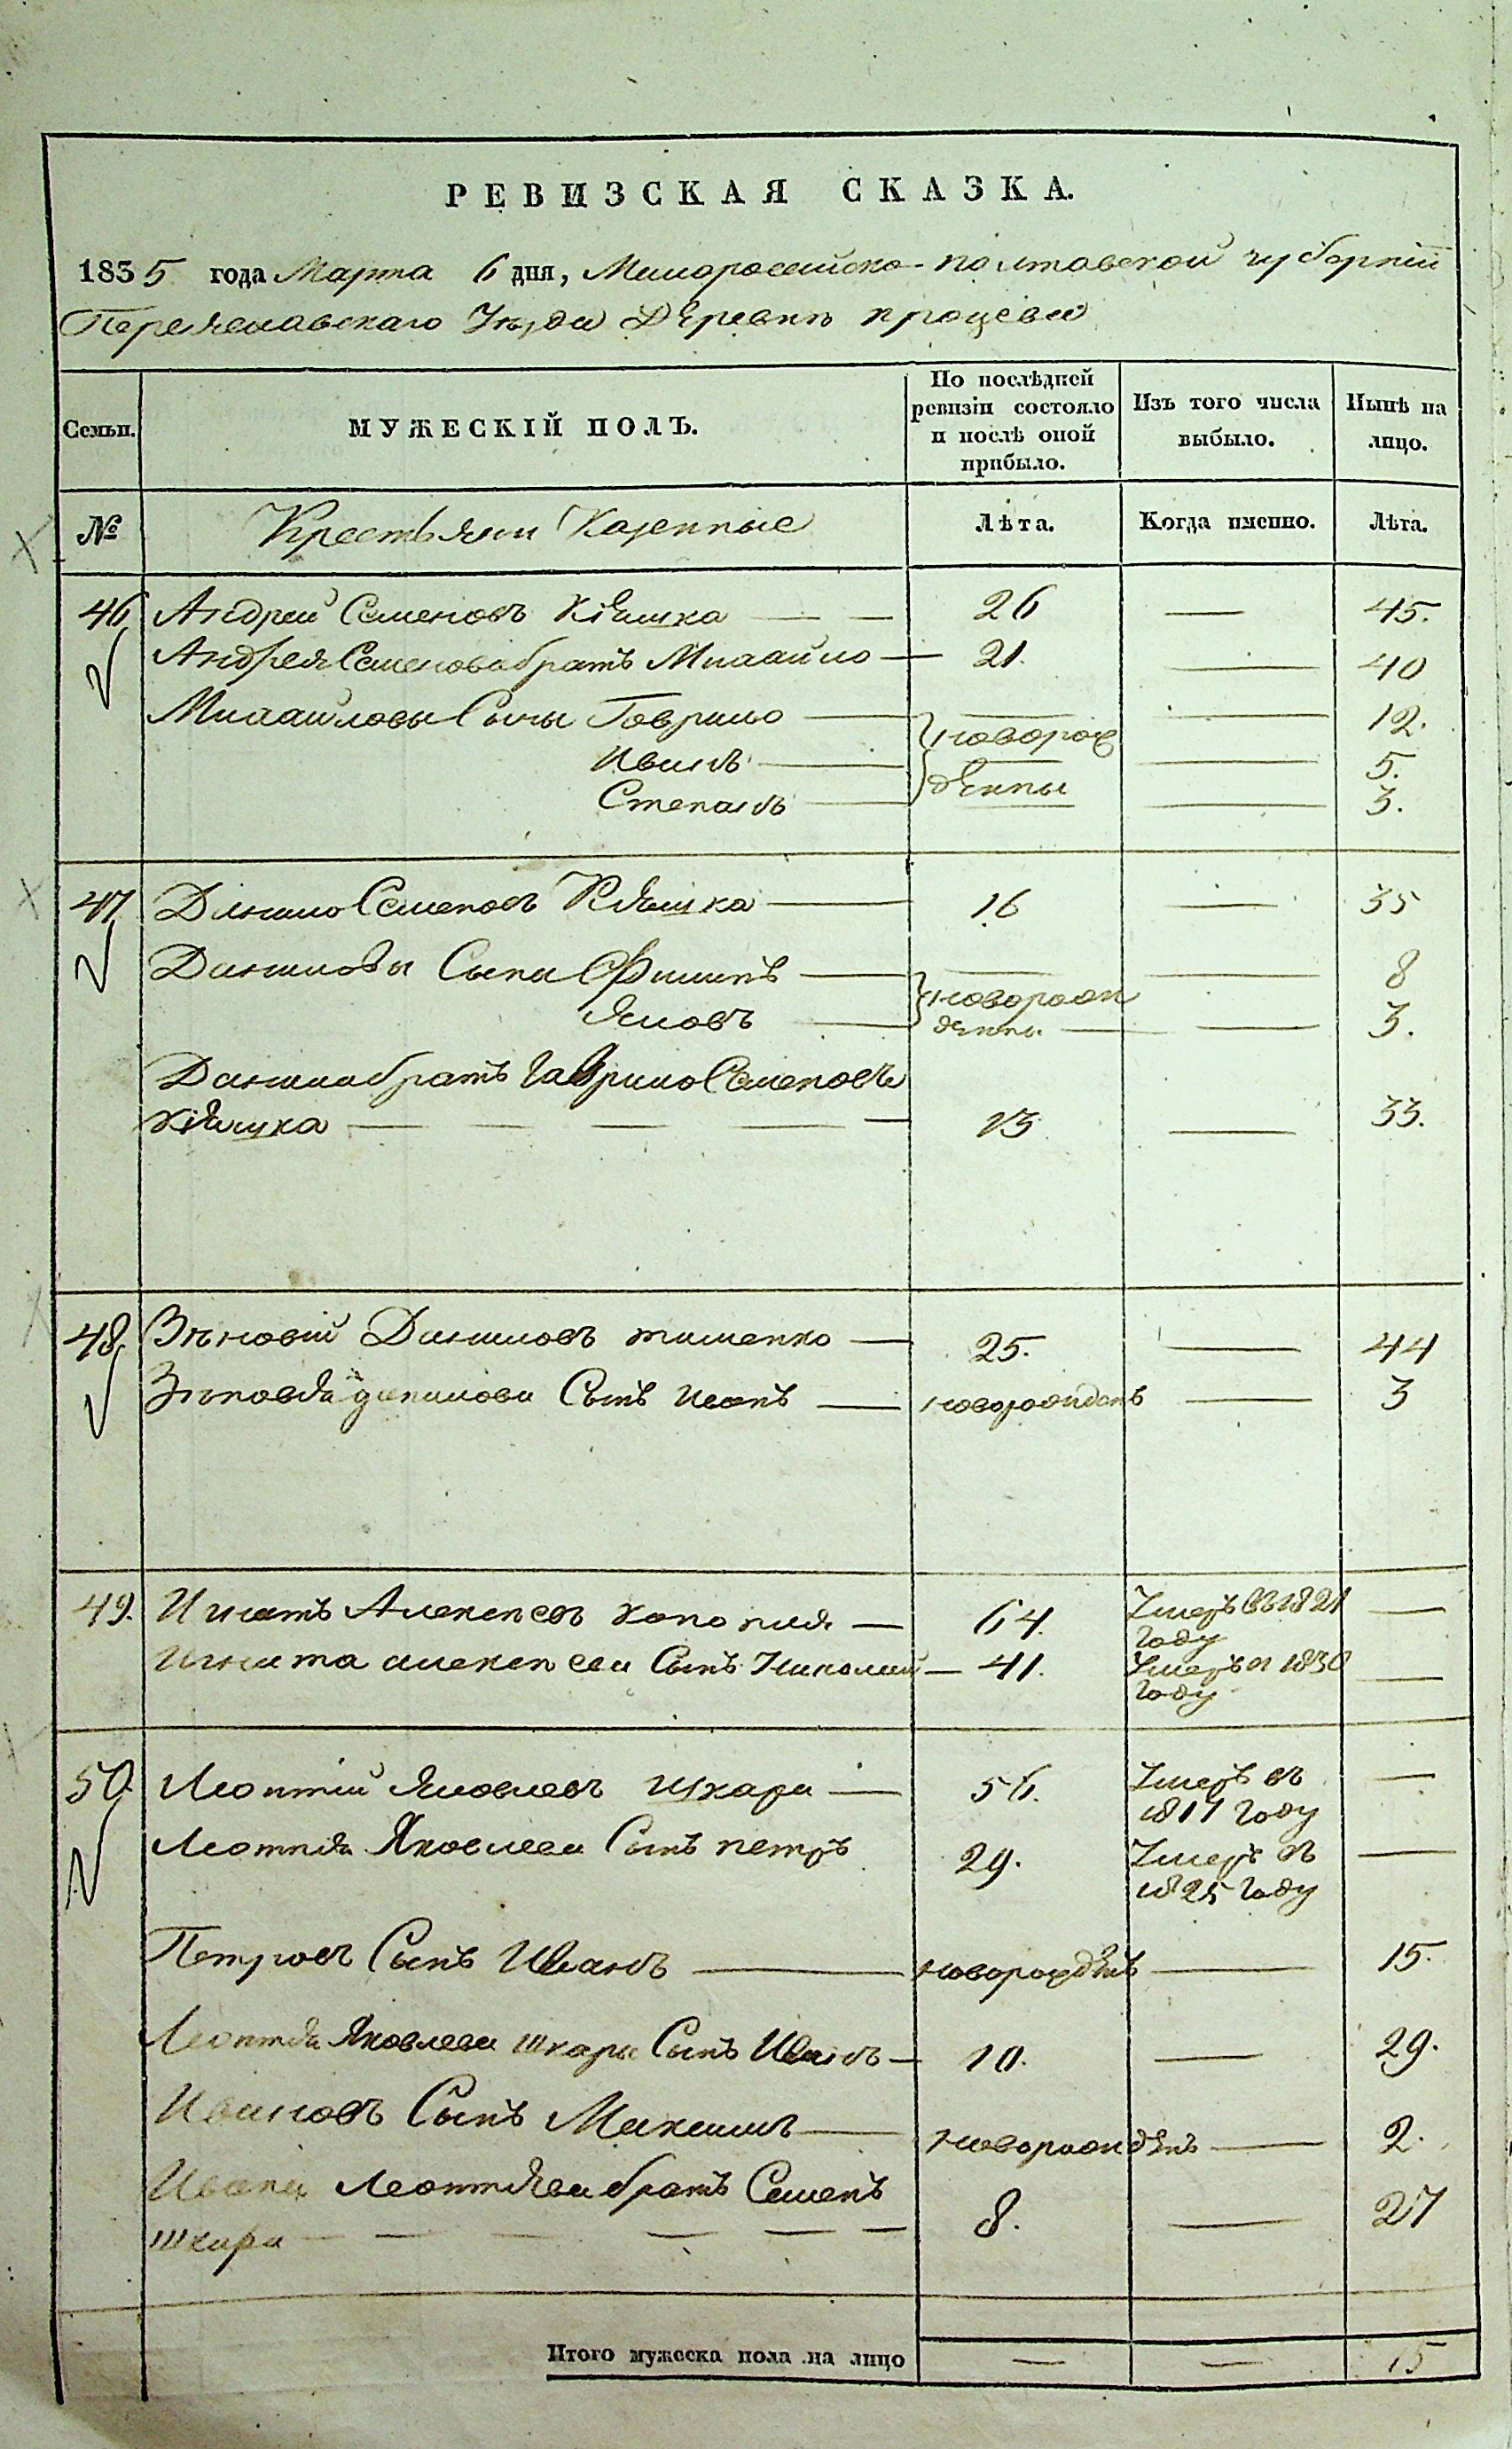 РЕВИЗСКАЯ СКАЗКА.
1835 года Марта 6 дня, Малоросейско-полтавской губернии
Переяславскаго Уезда Деревни процевы
Семьи. МУЖЕСКІЙ ПОЛЪ. По послѣдней ревизіи состояло и послѣ оной прибыло. Изъ того числа выбыло. Нынѣ на лицо.
№ Крестьяни Казенные Лѣта. Когда именно. Лѣта.
46 Андрей Семеновъ Кіяшка — — 26 — 45.
Андрея Семенова братъ Михайло — 21. — 40
Михайловы Сыны Гаврило — новорож — 12.
Иванъ — — 5.
Степанъ — денны — 3.
47 Данило Семеновъ Кіяшка — 16 — 35
Даниловы Сыны Филипъ — — — 8
Яковъ — новорожденны — — 3.
Данила братъ Гаврило Семеновъ
Кіяшка — — — — — 13 — 33.
48. Зѣновій Даниловъ тищенко — 25. — 44
Зѣновія данилова Сынъ Иванъ — новорожденъ — 3
49. Игнатъ Алексеевъ — 64. Умеръ въ 1821 году —
Игната алексеева Сынъ Николай — 41. Умеръ в 1830 году —
50. Леонтій Яковлевъ Шкара — 56. Умеръ въ 1817 году —
Леонтія Яковлева Сынъ петръ 29. Умеръ въ 1825 году —
Петровъ Сынъ Иванъ — новорожденъ — 15.
Леонтія Яковлева шкары Сынъ Иванъ — 10. — 29.
Ивановъ Сынъ Максимъ — новорожденъ — 2.
Ивана Леонтіева братъ Семенъ
шкара — — — — — 8. — 27
Итого мужеска пола на лицо — — 15